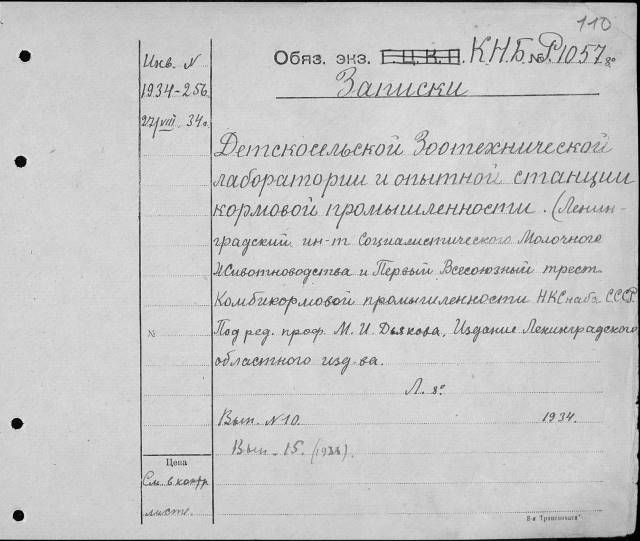 110
Обяз. экз. Г.Ц.К.П. К.Н.Б. № Р1057 8°
Записки
Инв. N
1934-256
27/VIII 34г.
Детскосельской Зоотехнической
лаборатории и опытной станции
кормовой промышленности. (Ленин-
градский ин-т Социалистического Молочного
Животноводства и Первый Всесоюзный трест
Комбикормовой промышленности НКСнаба СССР.
№
Под ред. проф. М. И. Дьякова, Издание Ленинградского
областного изд-ва.
Л. 8°
Вып. N 10. 1934.
Вып. 15.
Цена
См. в контр.
листе.
8-я "Транспечати"